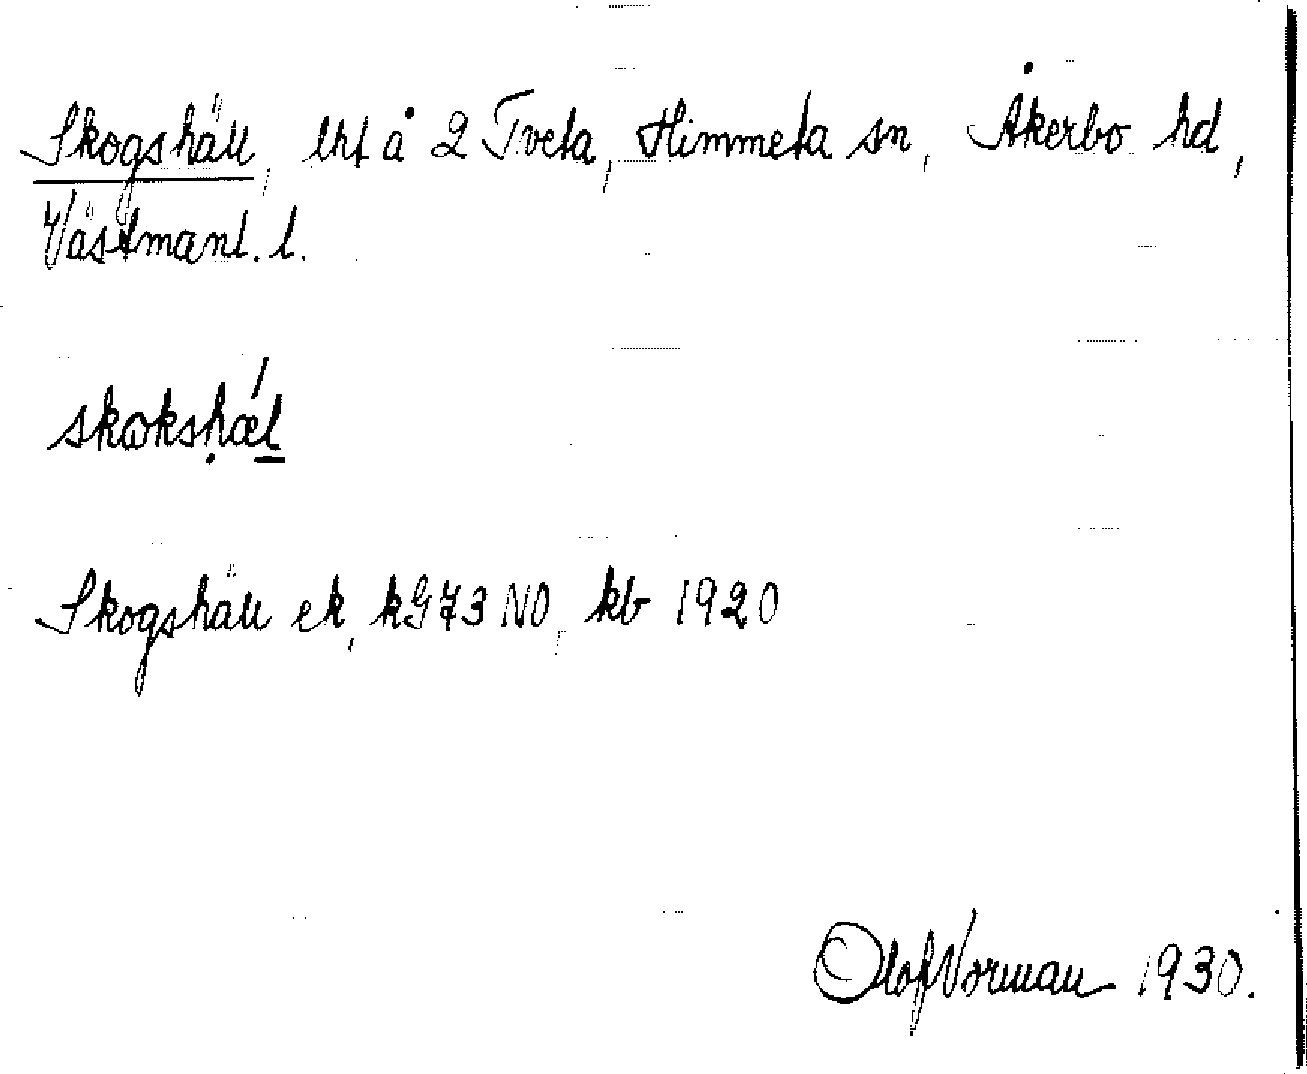 Skogshäll, lht å 2 Tveta, Himmeta sn, Åkerbo hd,
Västmanl. l.
skɷksḥǽl
Skogshäll ek, kG73 NO, kb 1920
Olof Norman 1930.